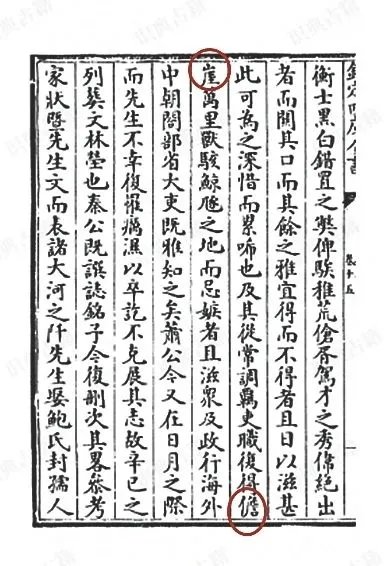 欽定四庫全書
卷十五
衡士黑白錯置之獘俾騃雅荒傖胥駕才之秀偉絕出
者而關其口而其餘之雅宜得而不得者且日以滋甚
此可為之深惜而累唏也及其從常調羈吏職復得儋
崖萬里獸駭鯨之地而忌嫉者且滋衆及政行海外
中朝閣部省大吏既雅知之矣蕭公今又在日月之際
而先生不幸復罹瘴濕以卒訖不克展其志故辛巳之
列文林塋也秦公既譔誌銘子令復刪次其畧叅考
家狀暨先生文而表諸大河之阡先生娶鮑氏封孺人